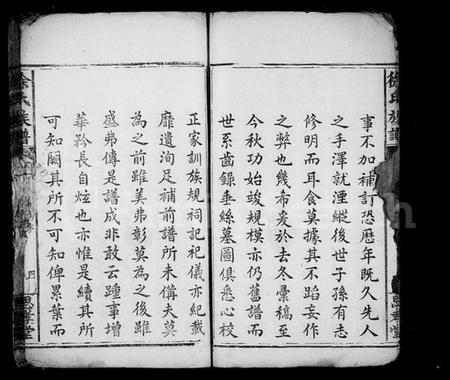 徐氏族譜
事不加補訂恐歷年既久先人
之手澤就湮縱後世子孫有志
修明而耳食莫據其不蹈妄作
之弊也幾希爰於去冬彙稿至
今秋功始竣規模亦仍舊譜而
世系齒錄垂絲墓圖俱悉心校
正家訓族規祠記祀儀亦紀載
靡遺洵足補前譜所未備夫莫
為之前雖美弗彰莫為之後雖
盛弗傳是譜成非敢云踵事增
華矜長自炫也亦惟是續其所
可知闕其所不可知俾累葉而
徐氏族譜